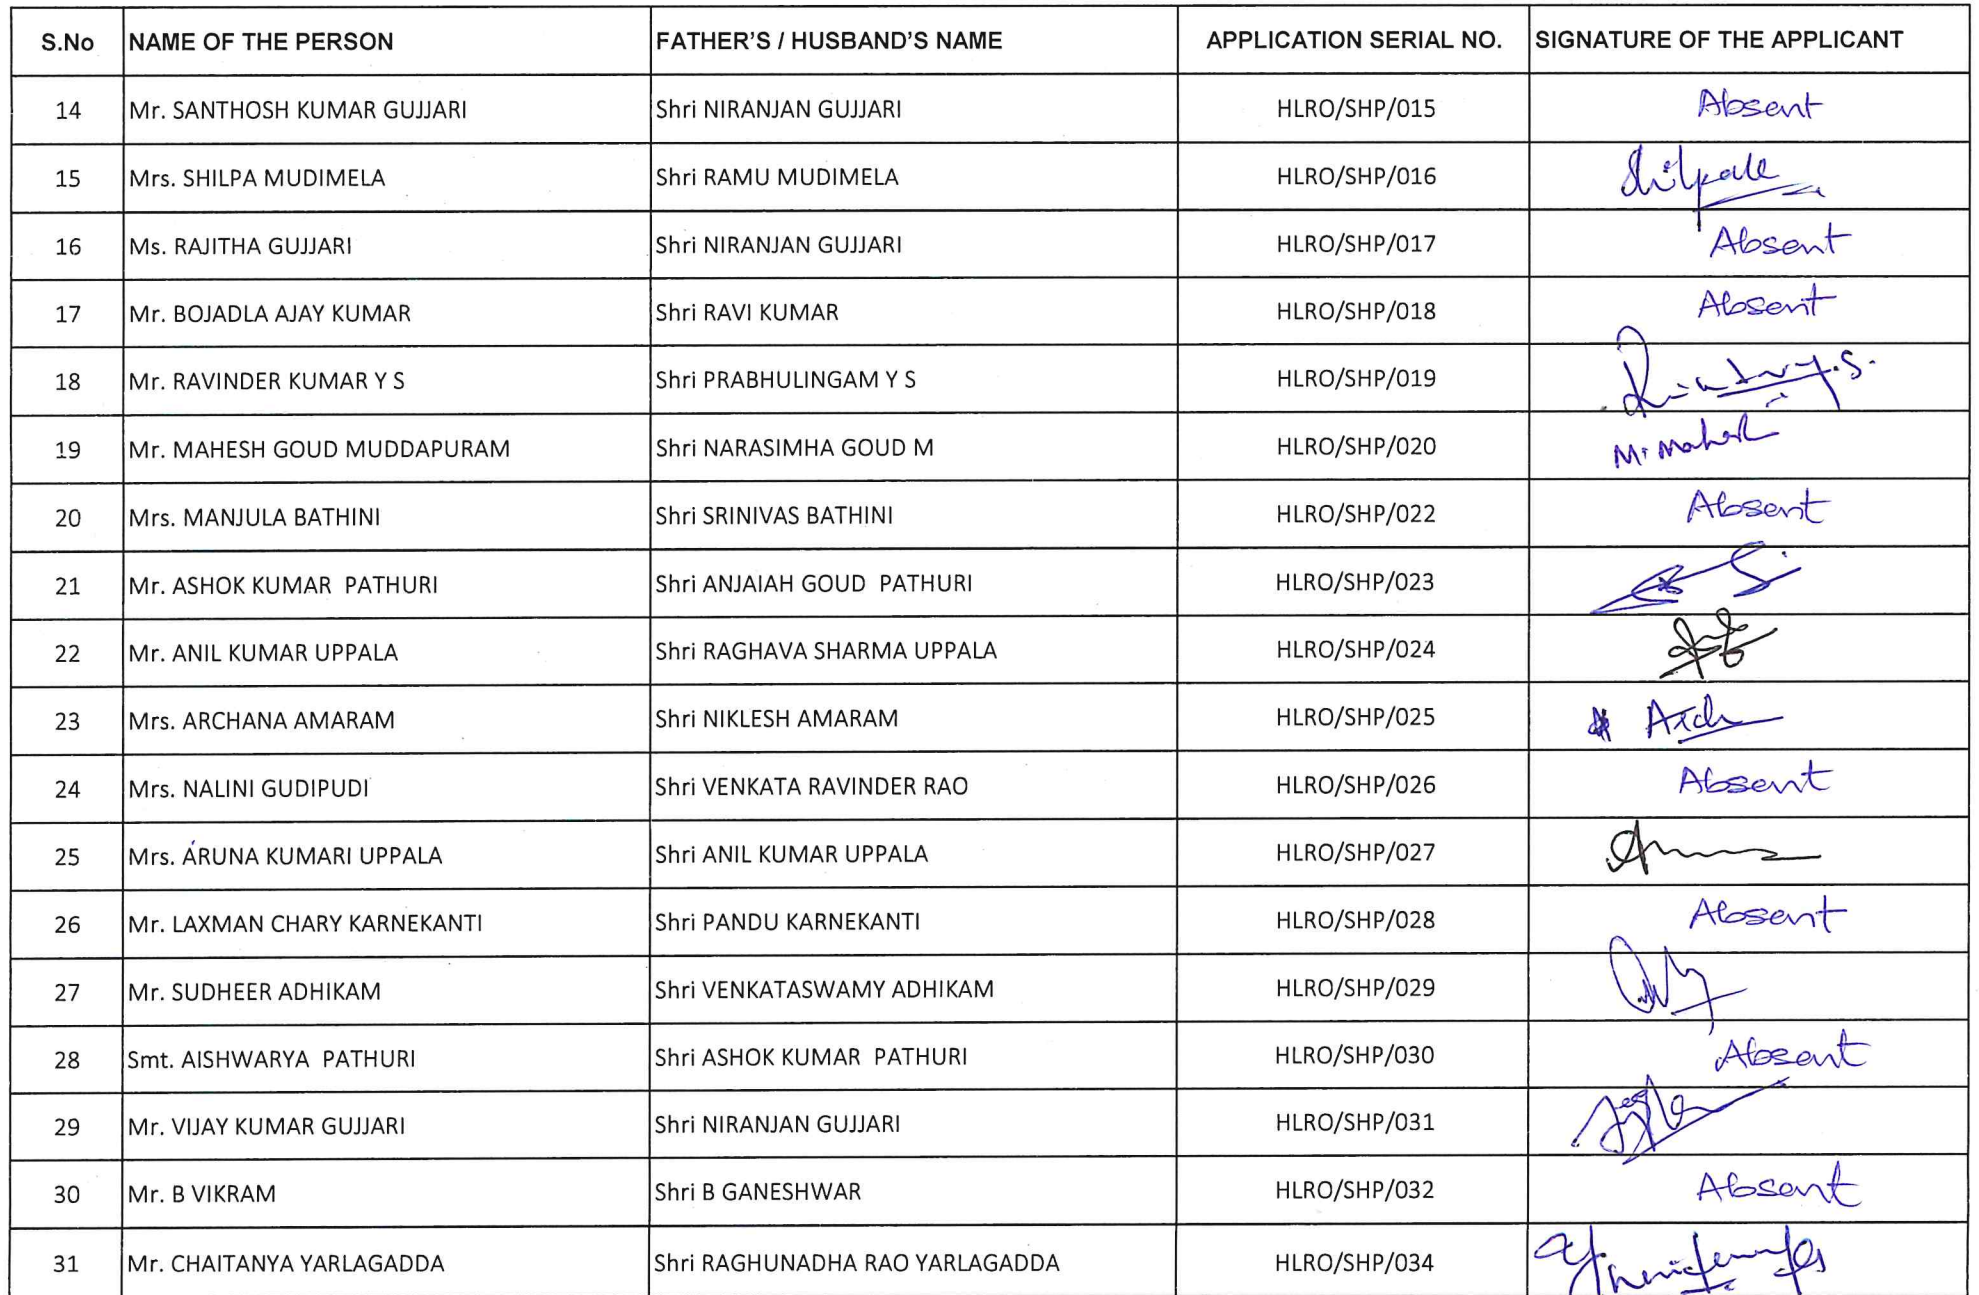 S.No NAME OF THE PERSON FATHER'S / HUSBAND'S NAME APPLICATION SERIAL NO. SIGNATURE OF THE APPLICANT
14 Mr. SANTHOSH KUMAR GUJJARI Shri NIRANJAN GUJJARI HLRO/SHP/015 Absent
15 Mrs. SHILPA MUDIMELA Shri RAMU MUDIMELA HLRO/SHP/016
16 Ms. RAJITHA GUJJARI Shri NIRANJAN GUJJARI HLRO/SHP/017 Absent
17 Mr. BOJADLA AJAY KUMAR Shri RAVI KUMAR HLRO/SHP/018 Absent
18 Mr. RAVINDER KUMAR Y S Shri PRABHULINGAM Y S HLRO/SHP/019
19 Mr. MAHESH GOUD MUDDAPURAM Shri NARASIMHA GOUD M HLRO/SHP/020 M. Mahesh
20 Mrs. MANJULA BATHINI Shri SRINIVAS BATHINI HLRO/SHP/022 Absent
21 Mr. ASHOK KUMAR PATHURI Shri ANJAIAH GOUD PATHURI HLRO/SHP/023
22 Mr. ANIL KUMAR UPPALA Shri RAGHAVA SHARMA UPPALA HLRO/SHP/024
23 Mrs. ARCHANA AMARAM Shri NIKLESH AMARAM HLRO/SHP/025
24 Mrs. NALINI GUDIPUDI Shri VENKATA RAVINDER RAO HLRO/SHP/026 Absent
25 Mrs. ARUNA KUMARI UPPALA Shri ANIL KUMAR UPPALA HLRO/SHP/027
26 Mr. LAXMAN CHARY KARNEKANTI Shri PANDU KARNEKANTI HLRO/SHP/028 Absent
27 Mr. SUDHEER ADHIKAM Shri VENKATASWAMY ADHIKAM HLRO/SHP/029
28 Smt. AISHWARYA PATHURI Shri ASHOK KUMAR PATHURI HLRO/SHP/030 Absent
29 Mr. VIJAY KUMAR GUJJARI Shri NIRANJAN GUJJARI HLRO/SHP/031
30 Mr. B VIKRAM Shri B GANESHWAR HLRO/SHP/032 Absent
31 Mr. CHAITANYA YARLAGADDA Shri RAGHUNADHA RAO YARLAGADDA HLRO/SHP/034